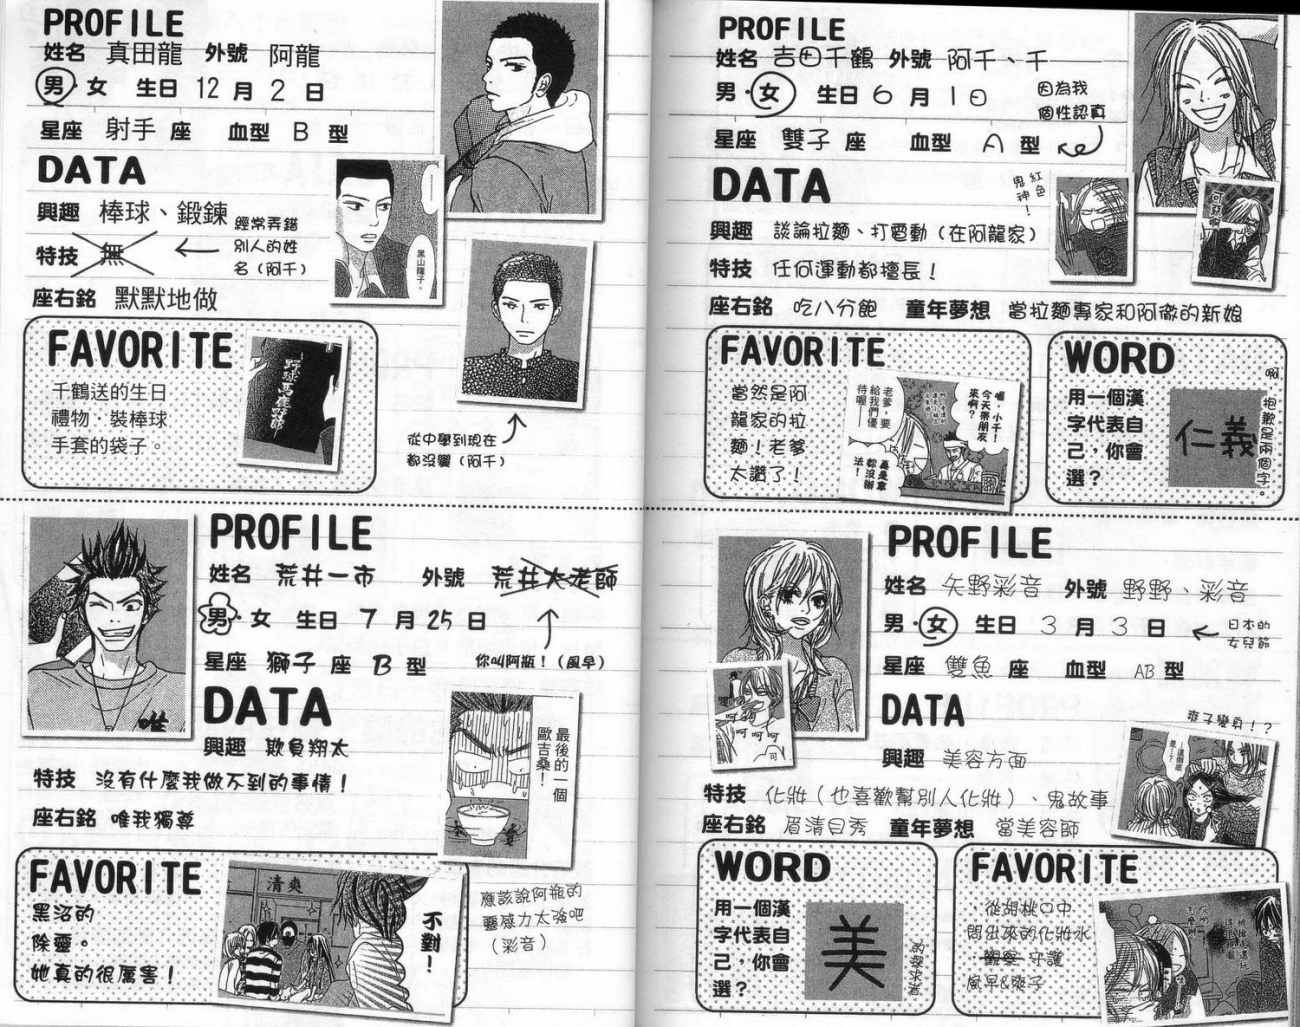 PROFILE
姓名 真田龍 外號 阿龍
男・女 生日 12 月 2 日
星座 射手 座 血型 B 型
DATA
興趣 棒球、鍛鍊
特技 無
經常弄錯
別人的姓
名（阿千）
座右銘 默默地做
黑山龍子。
FAVORITE
千鶴送的生日
禮物．裝棒球
手套的袋子。
野球馬鹿
從中學到現在
都沒變（阿千）
PROFILE
姓名 吉田千鶴 外號 阿千、千
男・女 生日 6 月 1 日
因為我
個性認真
星座 雙子 座 血型 A 型
DATA
紅色
鬼神！
興趣 談論拉麵、打電動（在阿龍家）
特技 任何運動都擅長！
座右銘 吃八分飽 童年夢想 當拉麵專家和阿徹的新娘
FAVORITE
當然是阿
龍家的拉
麵！老爹
太讚了！
喔，小千！
今天帶朋友
來啊？
老爹，要
給我們優
待喔——
真是拿
你沒辦
法！
WORD
用一個漢
字代表自
己，你會
選？
仁義
啊，抱歉是兩個字。
PROFILE
姓名 荒井一市 外號 荒井大老師
男・女 生日 7 月 25 日
你叫阿瓶！（風早）
星座 獅子 座 B 型
DATA
興趣 欺負翔太
特技 沒有什麼我做不到的事情！
座右銘 唯我獨尊
最後的一個
歐吉桑！
FAVORITE
黑沼的
除靈。
她真的很厲害！
清爽
不對！
應該說阿瓶的
靈感力太強吧
（彩音）
PROFILE
姓名 矢野彩音 外號 野野、彩音
男・女 生日 3 月 3 日
日本的
女兒節
星座 雙魚 座 血型 AB 型
呵
呵
呵
呵
可
DATA
爽子變身！？
興趣 美容方面
特技 化妝（也喜歡幫別人化妝）、鬼故事
座右銘 眉清目秀 童年夢想 當美容師
WORD
用一個漢
字代表自
己，你會
選？
美
的探求者
FAVORITE
．從胡桃口中
問出來的化妝水
．觀察 守護
風早&爽子